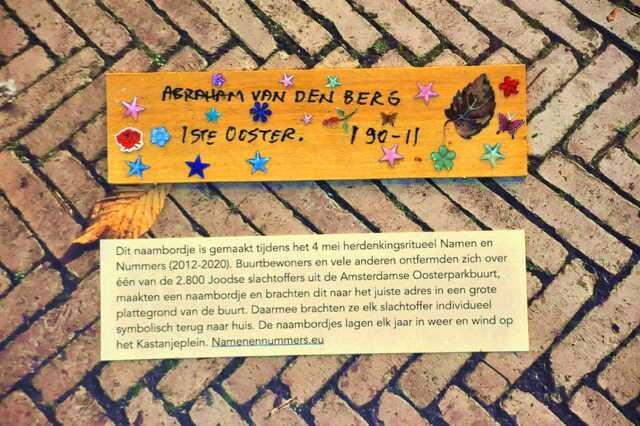 ABRAHAM VAN DEN BERG
1STE OOSTER. 190-11
Dit naambordje is gemaakt tijdens het 4 mei herdenkingsritueel Namen en
Nummers (2012-2020). Buurtbewoners en vele anderen ontfermden zich over
één van de 2.800 Joodse slachtoffers uit de Amsterdamse Oosterparkbuurt,
maakten een naambordje en brachten dit naar het juiste adres in een grote
plattegrond van de buurt. Daarmee brachten ze elk slachtoffer individueel
symbolisch terug naar huis. De naambordjes lagen elk jaar in weer en wind op
het Kastanjeplein. Namenennummers.eu